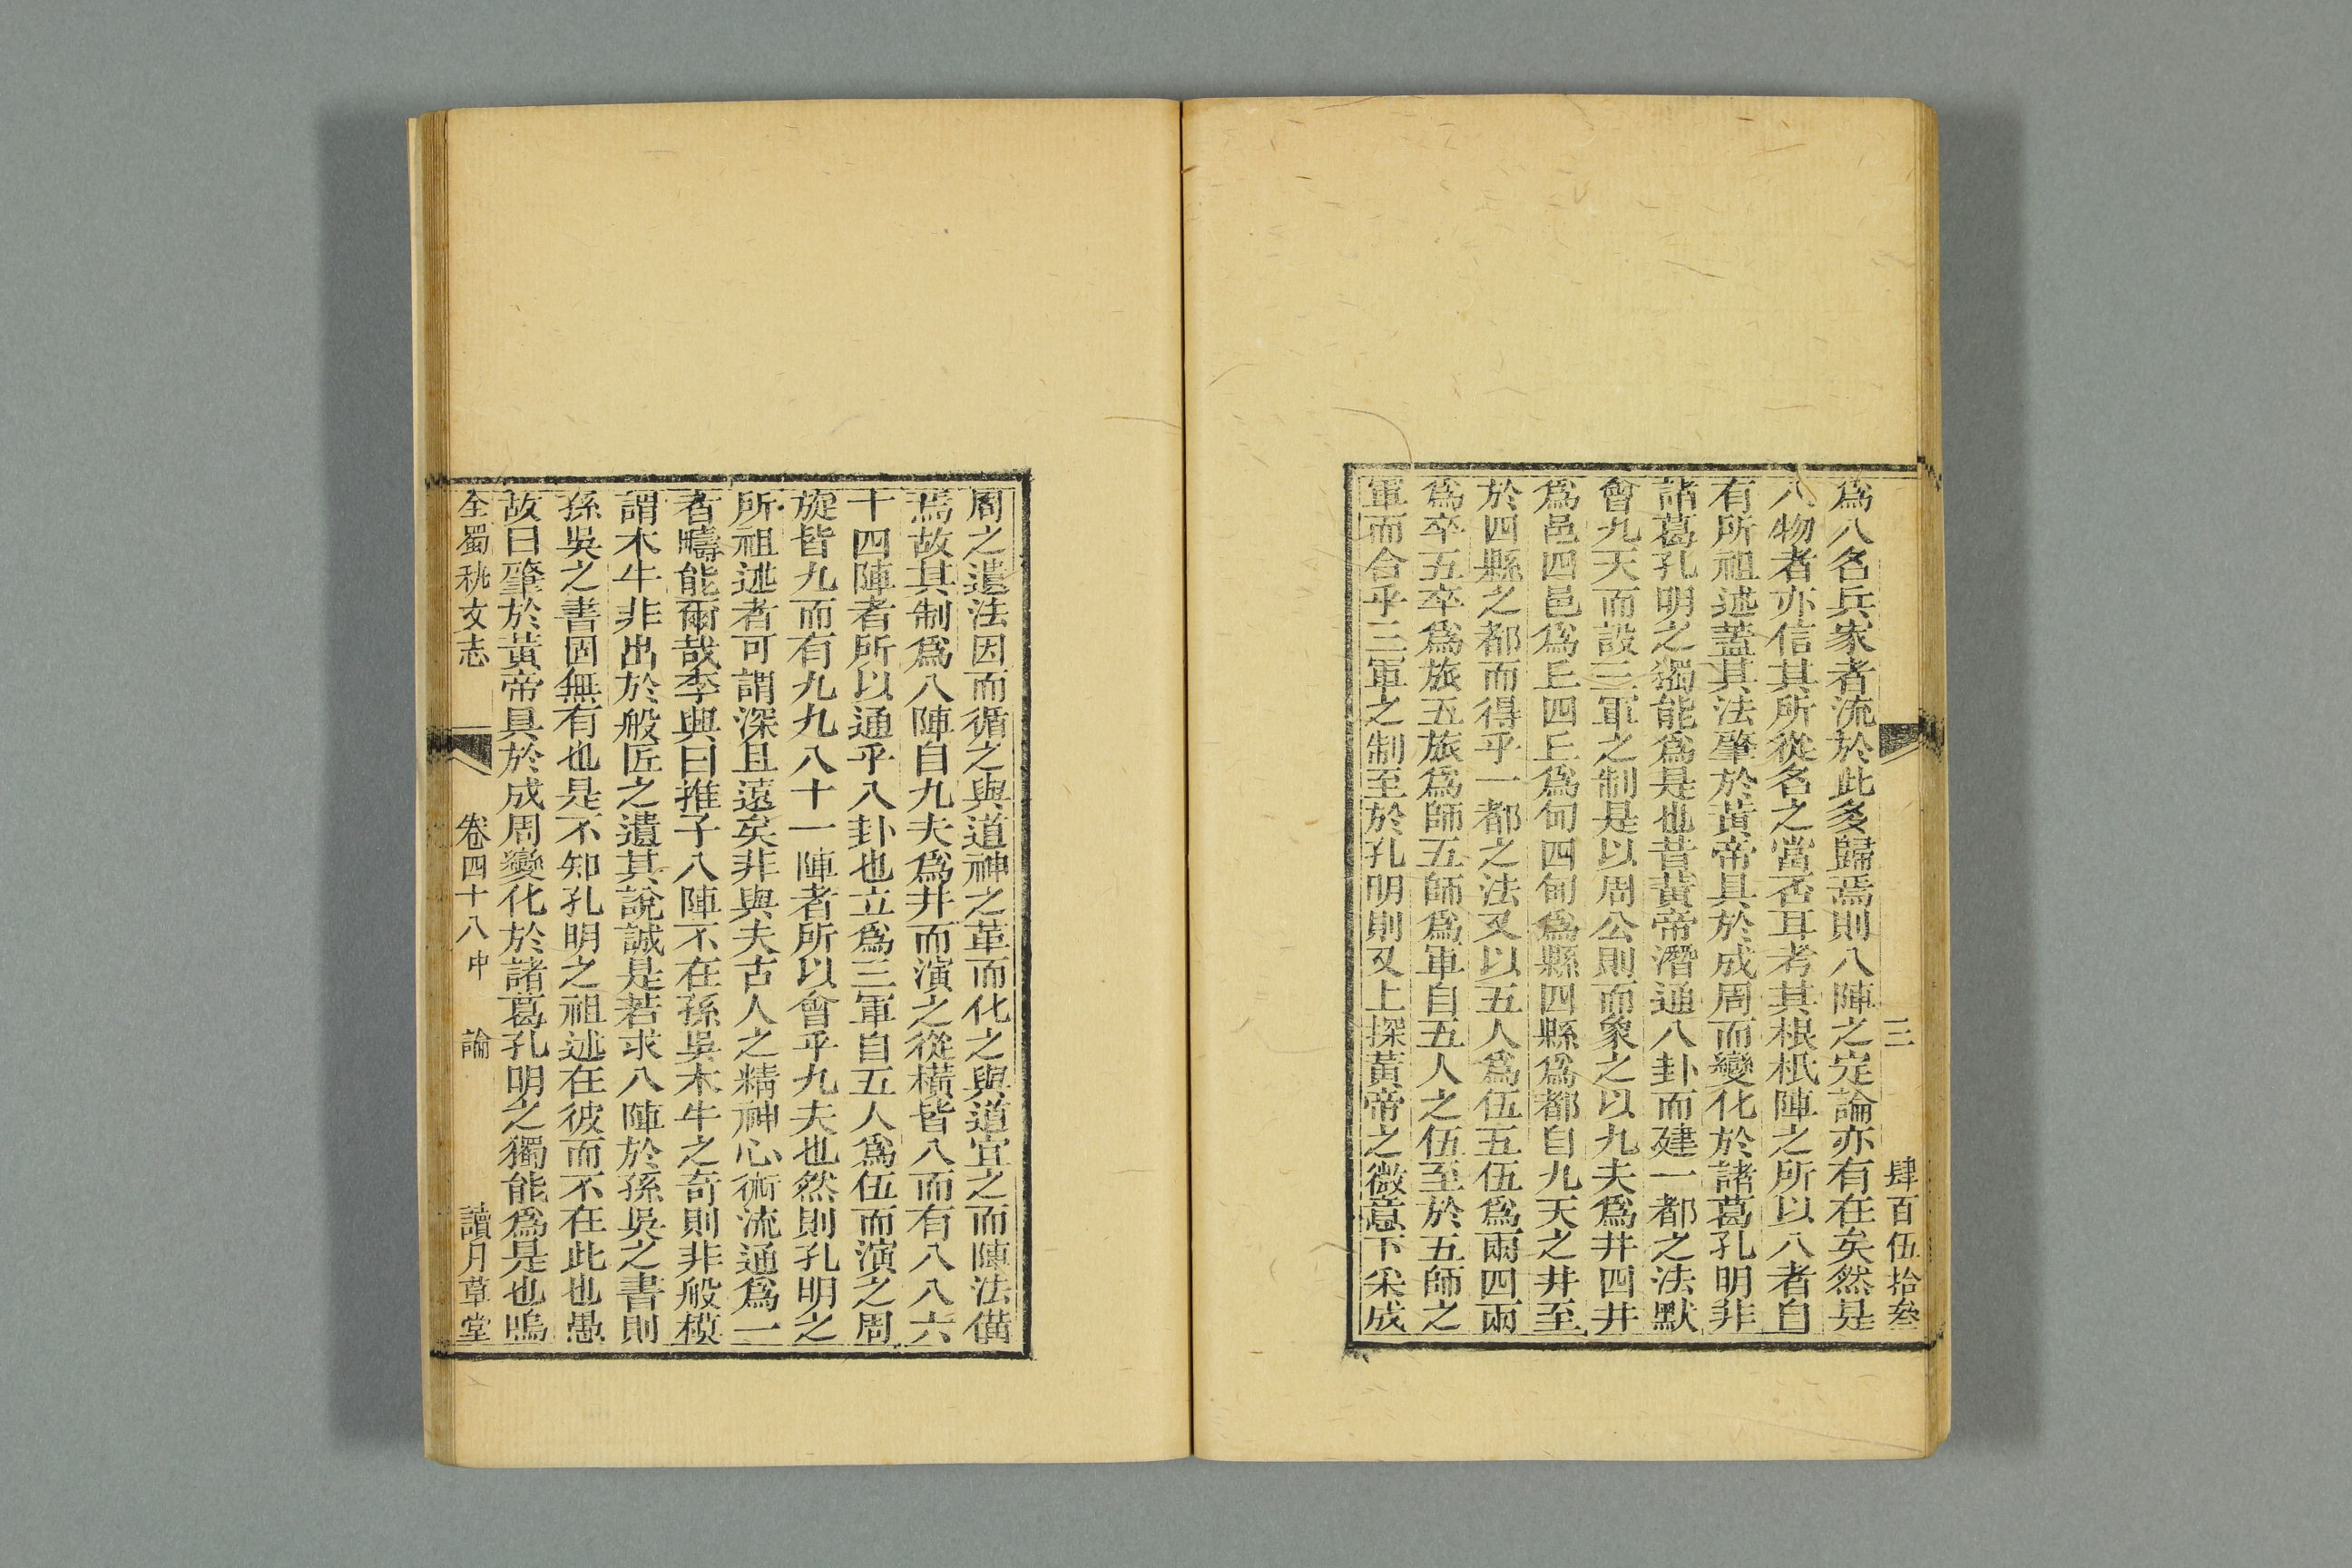 三　肆百伍拾叁
為八名兵家者流於此多歸焉則八陣之定論亦有在矣然是
八物者亦信其所從名之當否耳考其根柢陣之所以八者自
有所祖述蓋其法肇於黃帝具於成周而變化於諸葛孔明非
諸葛孔明之獨能為是也昔黃帝潛通八卦而建一都之法默
會九天而設三軍之制是以周公則而象之以九夫為井四井
為邑四邑為丘四丘為甸四甸為縣四縣為都自九天之井至
於四縣之都而得乎一都之法又以五人為伍五伍為兩四兩
為卒五卒為旅五旅為師五師為軍自五人之伍至於五師之
軍而合乎三軍之制至於孔明則又上探黃帝之微意下采成
周之遺法因而循之與道神之革而化之與道宜之而陣法備
焉故其制為八陣自九夫為井而演之從橫皆八而有八八六
十四陣者所以通乎八卦也立為三軍自五人為伍而演之周
旋皆九而有九九八十一陣者所以會乎九夫也然則孔明之
所祖述者可謂深且遠矣非與夫古人之精神心術流通為一
者疇能爾哉李興曰推子八陣不在孫吳木牛之奇則非般模
謂木牛非出於般匠之遺其說誠是若求八陣於孫吳之書則
孫吳之書固無有也是不知孔明之祖述在彼而不在此也愚
故曰肇於黃帝具於成周變化於諸葛孔明之獨能為是也嗚
全蜀秇文志　卷四十八中　論　讀月草堂